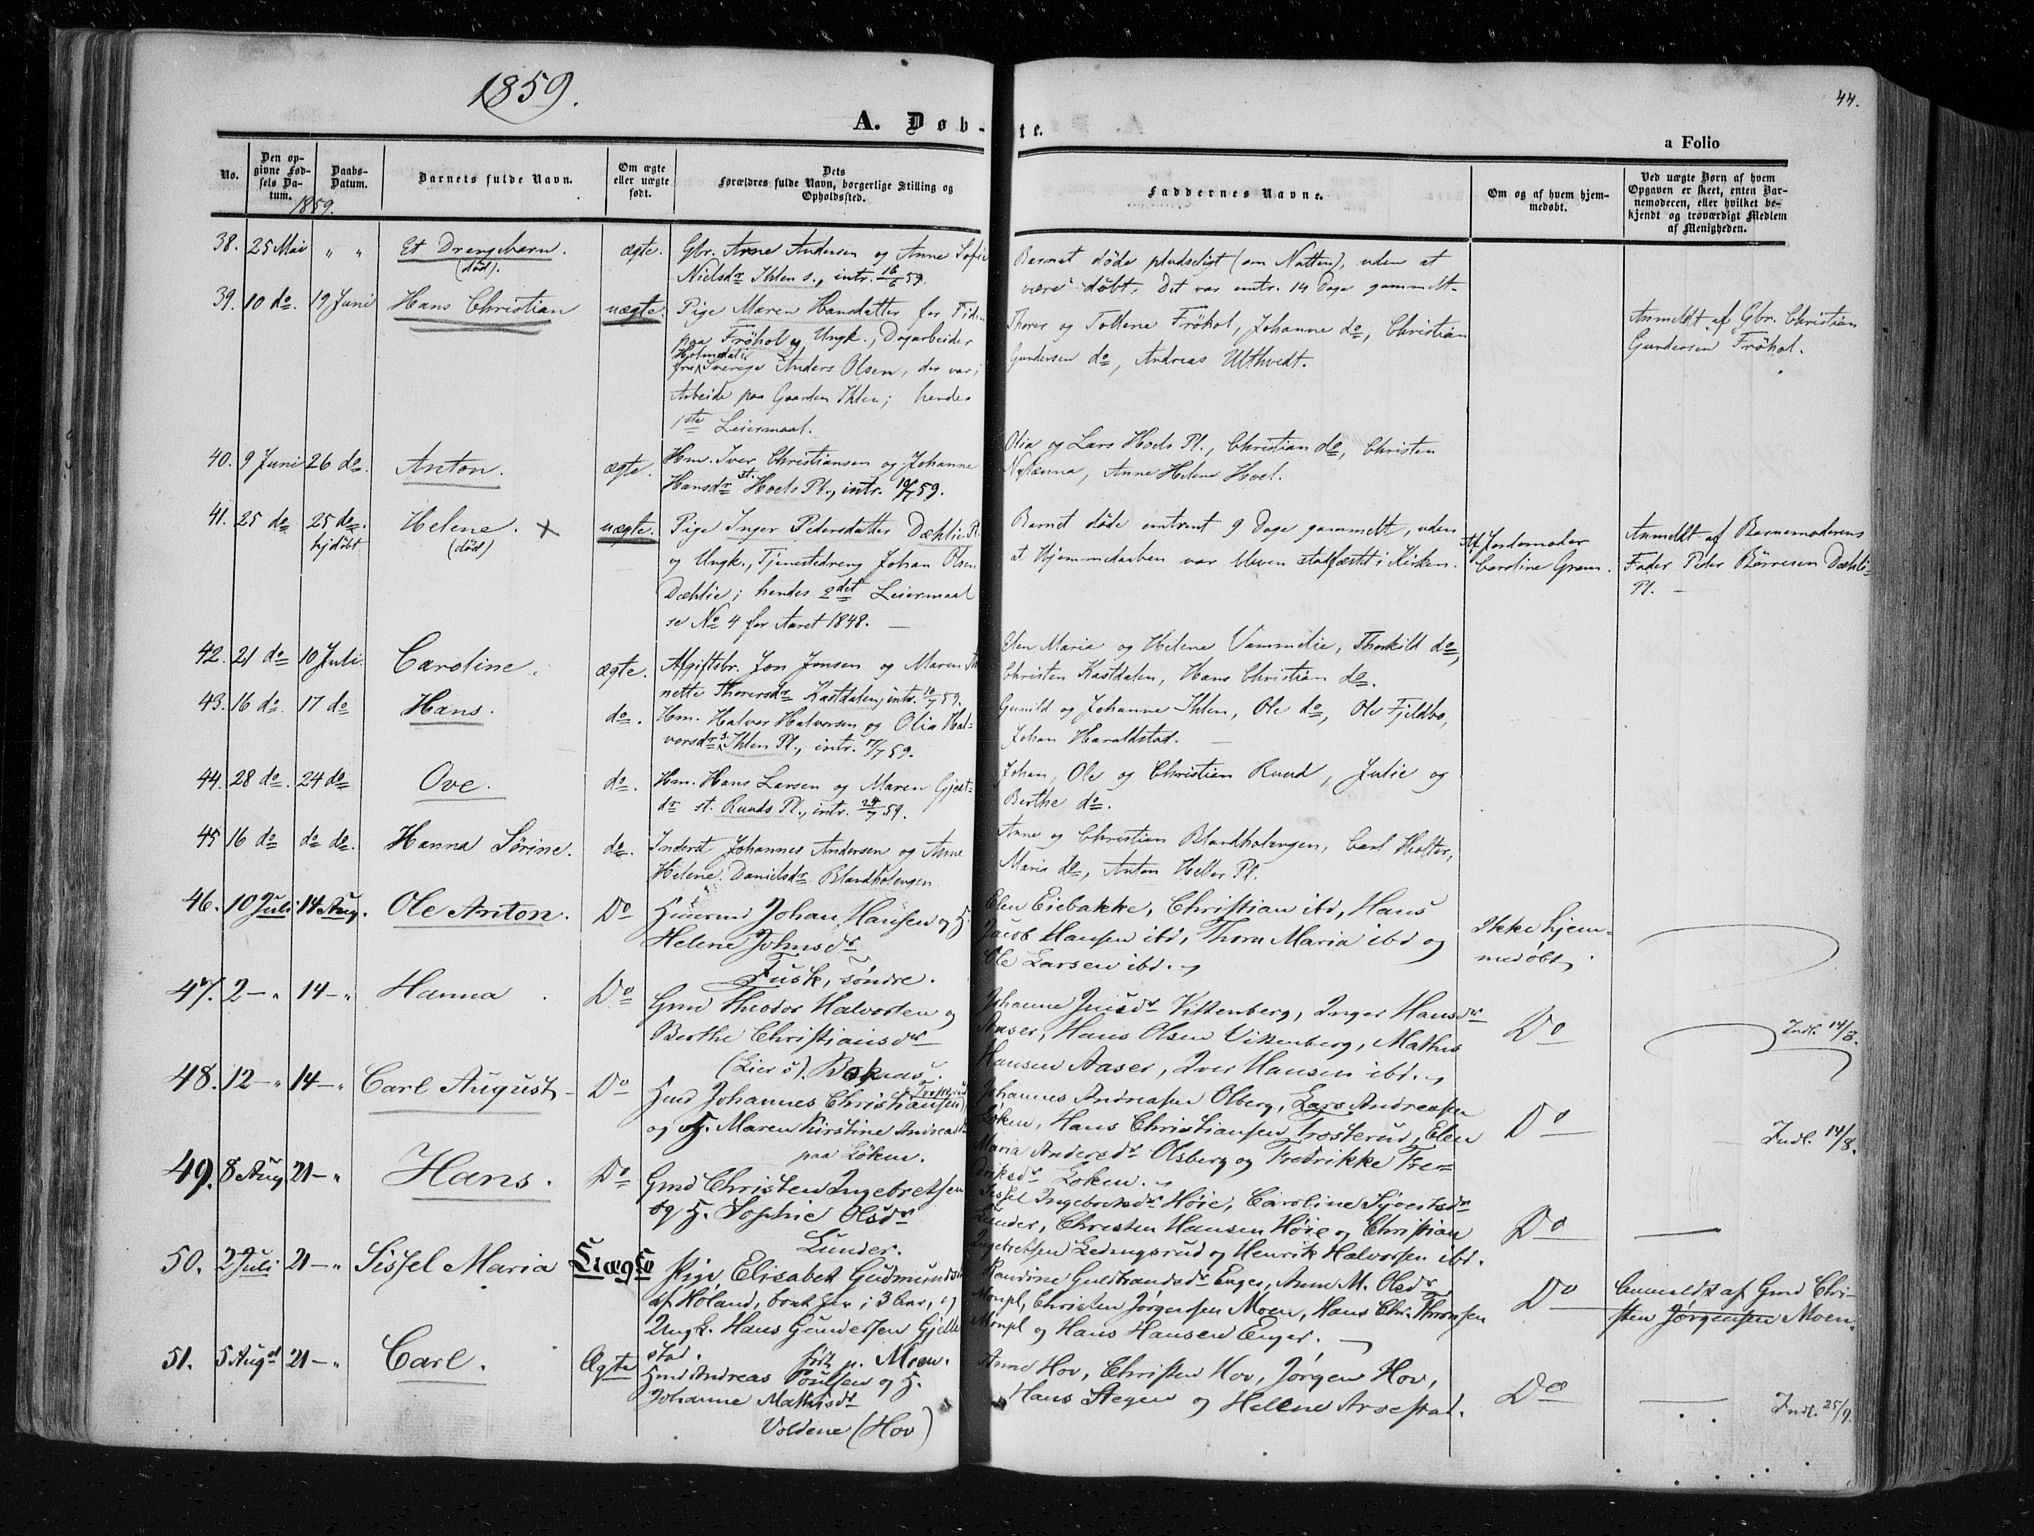 1859.
44.
A. Døb-te.
a Folio
No.
Den opgivne Fødsels Datum.
Daabs-Datum.
1859.
Barnets fulde Navn.
Om ægte eller uægte født.
Dets Forældres fulde Navn, borgerlige Stilling og Opholdssted.
Faddernes Navne.
Om og af hvem hjemmedøbt.
Ved uægte Børn af hvem Opgaven er skeet, enten Barnemoderen, eller hvilket bekjendt og troværdigt Medlem af Menigheden.
38. 25 Mai " " Et Drengebarn. (död). ægte.
Gbr. Arne Andersen og Anne Sofie
Nielsdr Ihlen s., intr. 16/6 59.
Barnet döde pludseligt (om Natten), uden at
være döbt. Det var omtr. 14 Dage gammelt.
39. 10 do. 19 Juni Hans Christian uægte.
Pige Maren Hansdatter for Tiden
paa Fröhol og Ungk., Dagarbeider
fra Sverige Anders Olsen, der var i
Arbeide paa Gaarden Ihlen; hendes
1ste Leiermaal.
Thorer og Tollene Fröhol, Johanne do, Christian
Gundersen do, Andreas Ulthvedt.
Anmeldt af Gbr. Christian
Gundersen Fröhol.
40. 9 Juni 26 do. Anton. ægte.
Hm. Iver Christiansen og Johanne
Hansdr st. Hoels Pl., intr. 10/7 59.
Olia og Lars Hoels Pl., Christian do, Christen
Anne Helene Hoel.
41. 25 do 25 do. hjdöbt Helene. (död) × uægte.
Pige Inger Pedersdatter Dæhlie Pl.
og Ungk., Tjenestedreng Johan Olsen
Dæhlie; hendes 2det Leiermaal
se No 4 for Aaret 1848. —
Barnet döde omtrent 9 Dage gammelt, uden
at Hjemmedaaben var bleven stadfæstet i Kirken.
Af Jordemoder
Caroline Gram.
Anmeldt af Barnemoderens
Fader Peder Börresen Dæhlie
Pl. —
42. 21 do 10 Juli. Caroline. ægte.
Afgiftsbr. Jon Jonsen og Maren An
nette Thorersdr Kastdalen, intr. 10/7 59.
Elen Maria og Helene Vammelie, Thorkild do,
Christen Kastdalen, Hans Christian do.
43. 16 do. 17 do Hans. do.
Hm. Halvor Halvorsen og Olia Hal-
vorsdr s. Ihlen Pl., intr. 17/7 59.
Gunild og Johanne Ihlen, Ole do, Ole Fjeldbo,
Johan Haraldstad. —
44. 28 do. 24 do Ove. do.
Hm. Hans Larsen og Maren Gjest-
dr st. Ruuds Pl., intr. 24/7 59.
Johan, Ole og Christian Ruud, Julie og
Berthe do.
45 16 do do do. Hanna Sörine. do.
Inderst Johannes Andersen og Anne
Helene Danielsdr Blandholengen.
Anne og Christian Blandholengen, Carl Holter,
Maria do, Anton Heller Pl.
46. 10 Juli 14 Aug. Ole Anton. Do
Johan Hansen og H.
Helene Johnsdr
Fusk, söndre.
Elen Eiebakke, Christian ibd, Hans
Jacob Hansen ibd, Thorn Maria ibd og
Ole Larsen ibd.
Ikke hjem-
medöbt
47. 2 — " 14 — " Hanna. Do
Gmd Theodor Halvorsen og
Berthe Christiansdr
(Lier s). Bokaas.
Johanne Juisdr Vittenberg, Inger Hansdr
Aaser, Hans Olsen Vittenberg, Mathis
Hansen Aaser, Iver Hansen ibd.
Do
Indl. 14/8.
48. 12 — " 14 — " Carl August Do
Hmd Johannes Christiansen
og H. Maren Kirstine Andreasdr
paa Löken.
Johannes Andreasen Olberg, Lars Andreasen
Löken, Hans Christiansen Trosterud, Elen
Maria Andersdr Olsberg og Fredrikke Fre-
driksdr Loken.
Do
Indl. 14/8.
49. 8 Aug 21 — " Hans. Do
Gmd Christen Ingebretsen
og H. Sophie Olsdr
Lunder.
Sissel Ingebretsdr Höie, Caroline Sjovertsdr
Lunder, Christen Hansen Höie og Christian
Ingebretsen Ledingsrud og Henrik Halvorsen ibd.
Do
50. 2 Juli 21 — " Sissel Maria Uægte
Pige Elisabet Gudmundsdr
af Höland, boet her i 3 Aar, og
Ungk. Hans Gundersen Gjelle
stad. födt p. Moen.
Randine Guldbrandsdr Enger, Anne M. Olsdr
Moepl, Christen Jørgensen Moen, Hans Chr. Thoresen
Moepl og Hans Hansen Enger.
Do
Anmeldt af Gmd Chri-
sten Jørgensen Moen.
51. 5 August 21 — " Carl. Ægte
Hmd Andreas Poulsen og H.
Johanne Mathisdr
Voldene (Hov)
Anne Hov, Christen Hov, Jörgen Hov,
Hans Stegen og Hellene Arsestad.
Do
Indl. 25/9.